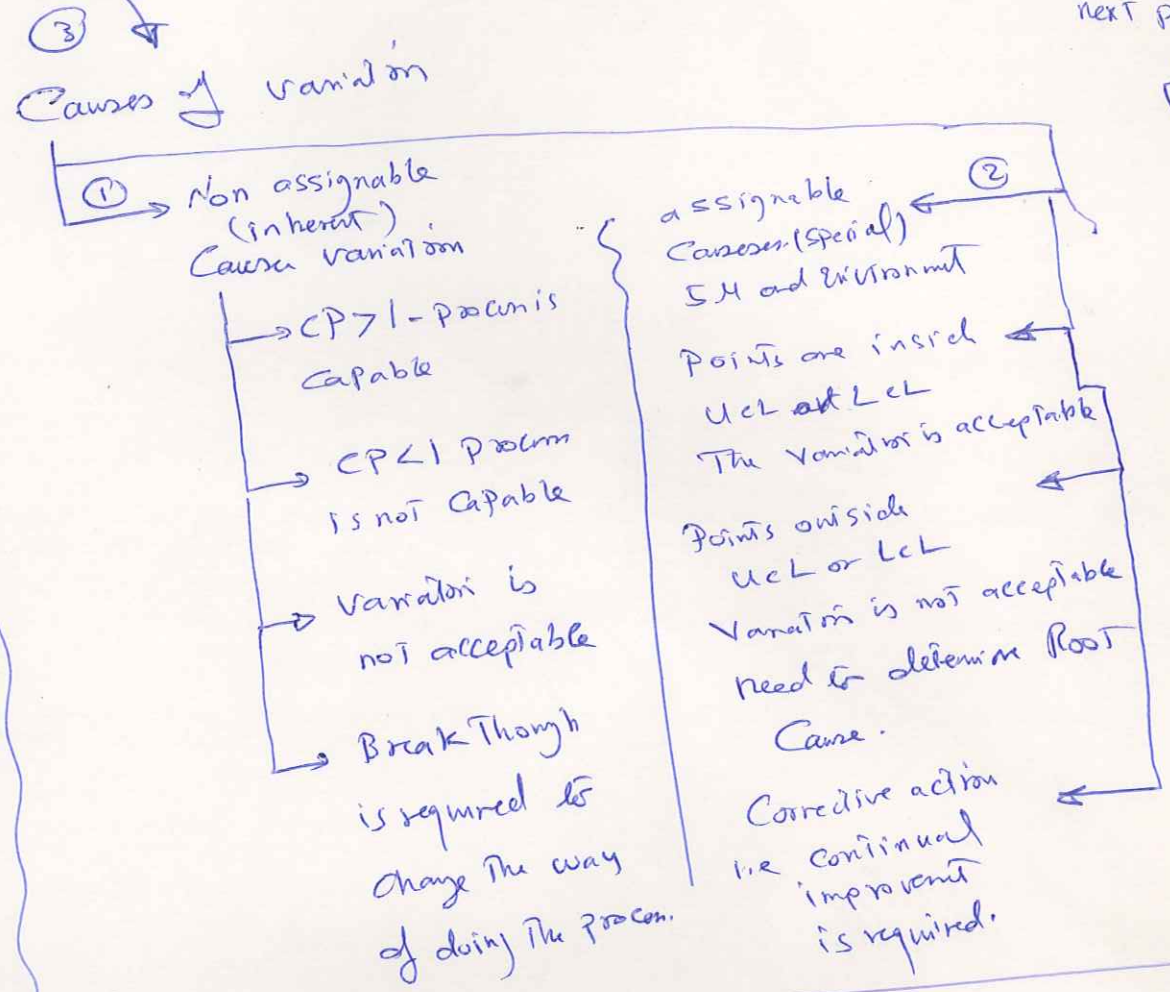 ③
next p
Causes of variation
① Non assignable
(inherent)
Causes variation
CP>1 - process is
capable
CP<1 process
is not capable
Variation is
not acceptable
Break Though
is required to
change The way
of doing The process.
②
assignable
Causeses (special)
5M and Environmt
Points are inside
UCL and LCL
The variation is acceptable
Points outside
UCL or LCL
Variation is not acceptable
need to determine Root
Cause.
Corrective action
i.e continual
improvemt
is required.